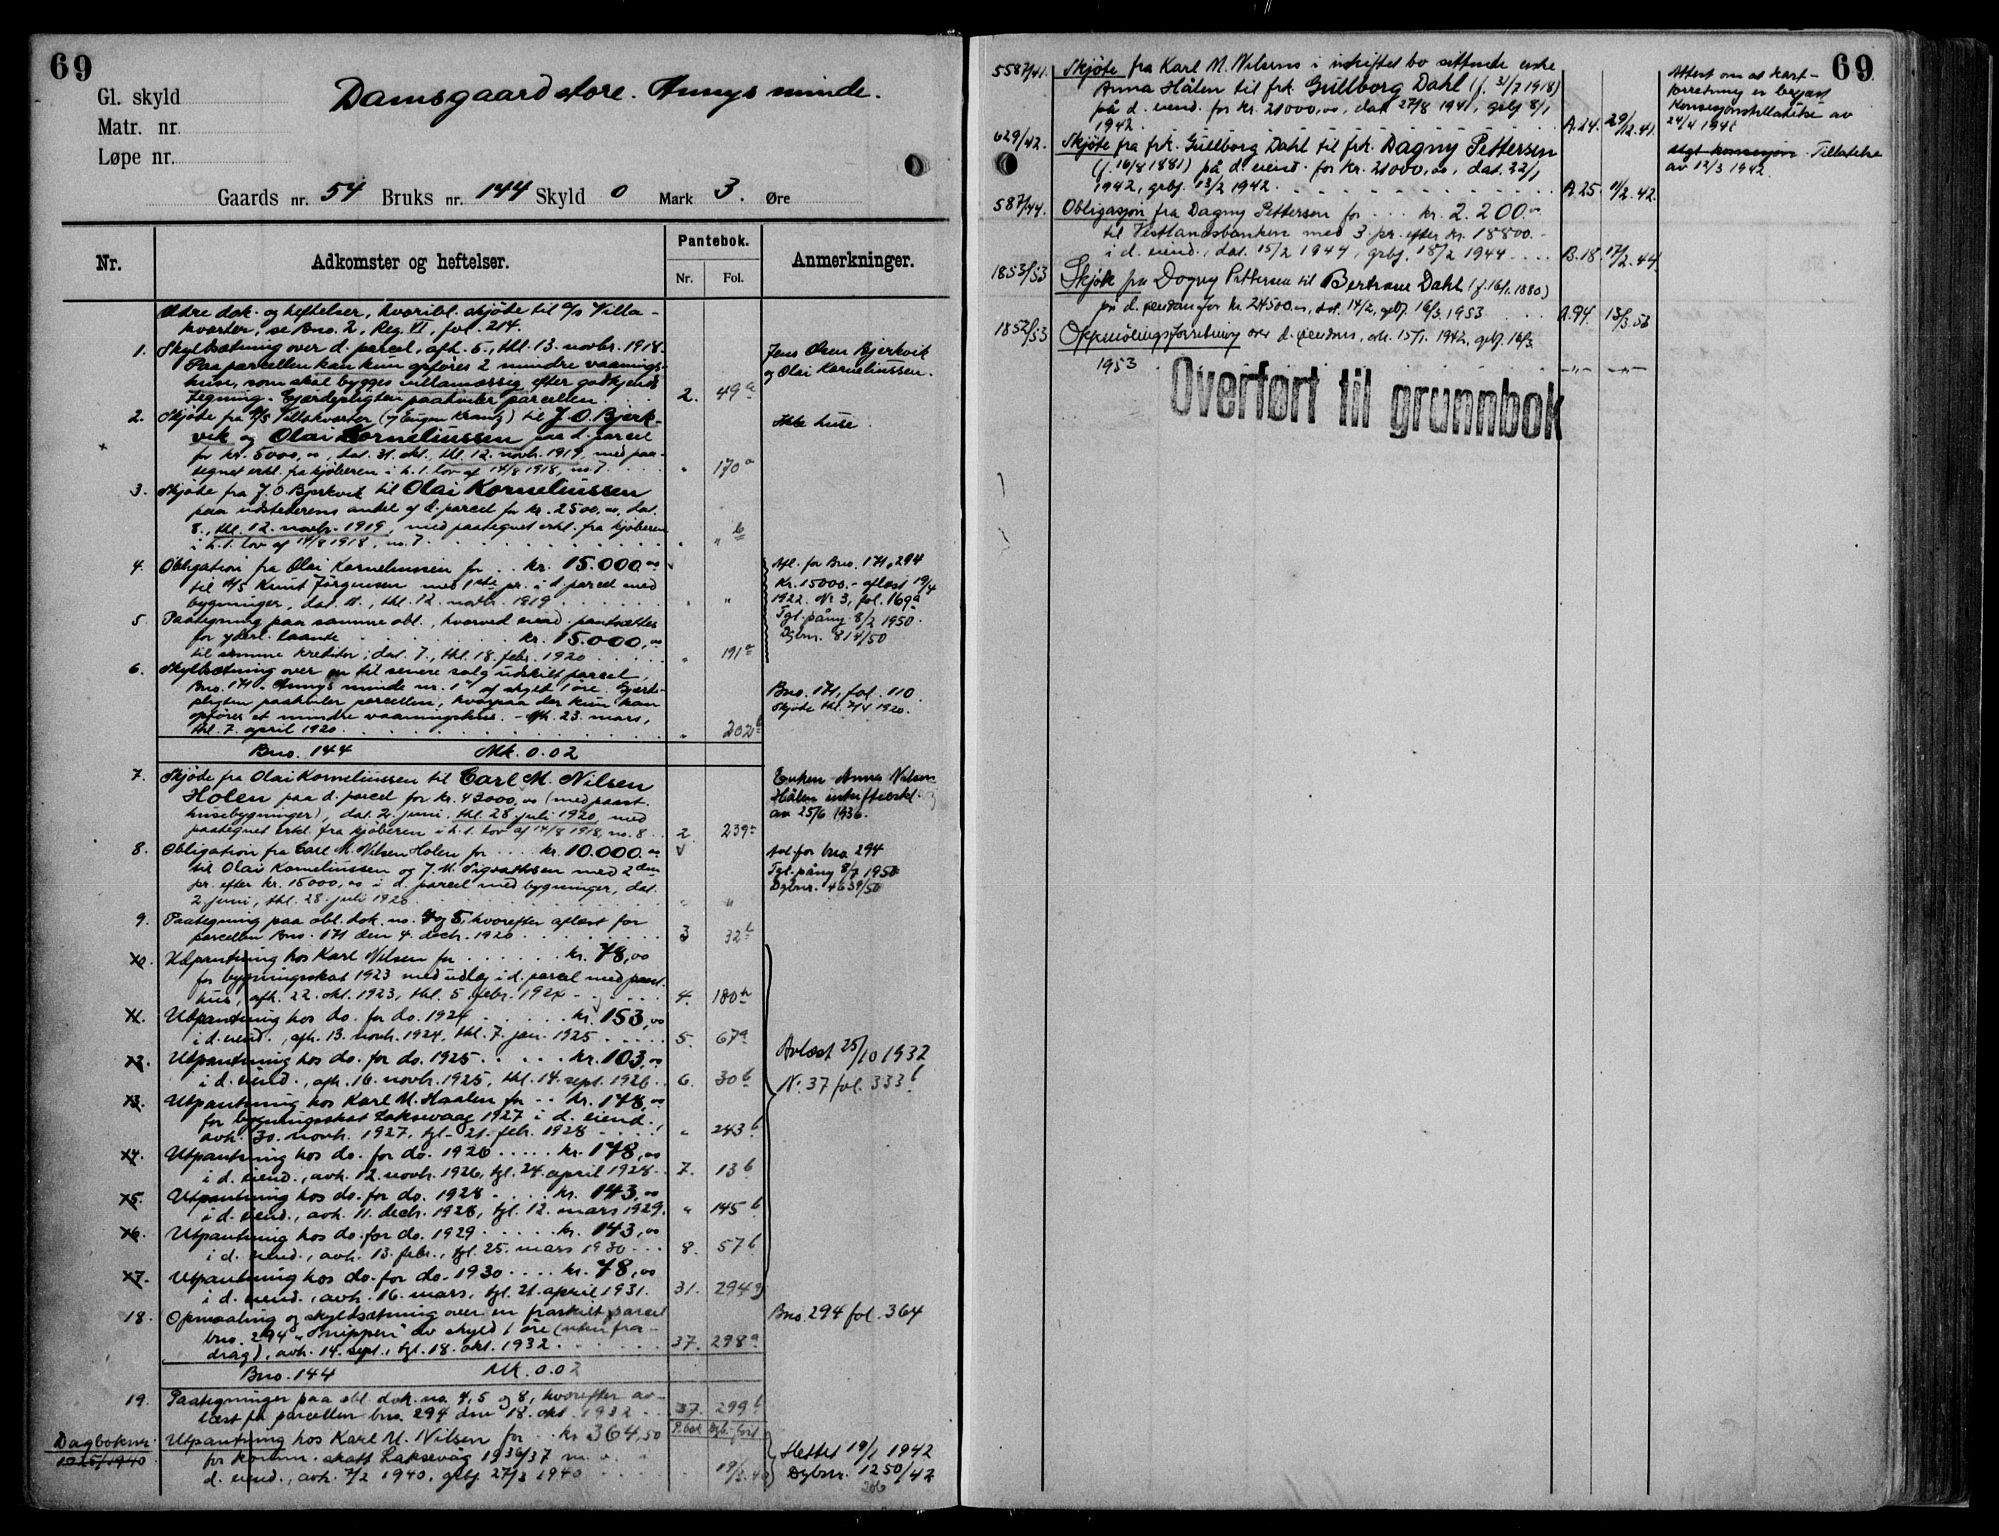 69
Gl. skyld
Matr. nr.
Løpe nr.
Damsgaard store. Annys minde.
Gaards nr. 54 Bruks nr. 144 Skyld 0 Mark 3. Øre
Nr.
Adkomster og heftelser.
Pantebok.
Nr. Fol.
Anmerkninger.
Ældre dok. og heftelser, hvoribl. skjøte til A/s Villa-
kvarter, se Bno. 2, Reg. VI, fol. 214.
1. Skyldsætning over d. parcel, afh. 5., thl. 13. novbr. 1918.
Paa parcellen kan kun opføres 2 mindre vaanings-
huse, som skal bygges villamæssig efter godkjendt
tegning. Gjærdepligten paahviler parcellen. 2. 49a
Jens Olsen Bjerkvik
og Olai Korneliussen.
2. Skjøde fra A/s Villakvarter (v/ Eugen Krang) til J. O. Bjerk-
vik og Olai Korneliussen paa d. parcel
for kr. 5000,00, dat. 31. okt., thl. 12. novbr. 1919, med paa-
tegnet erkl. fra kjøberen i h. t. lov af 14/8 1918, no. 7. " 170a
Ikke huse.
3. Skjøde fra J. O. Bjerkvik til Olai Korneliussen
paa udstederens andel af d. parcel for kr. 2500,00, dat.
8., thl. 12. novbr. 1919, med paategnet erkl. fra kjøberen
i h. t. lov af 14/8 1918, no. 7. " " b
4. Obligation fra Olai Korneliussen for kr. 15.000,00
til A/s Knut Jørgensen med 1ste pr. i d. parcel med
bygninger, dat. 11., thl. 12. novbr. 1919 " "
Afl. for Bno. 171, 294
Kr. 15000.- aflæst 19/4
1922. Nr 3, fol. 169a
Tgl. påny 8/2 1950.
Dgbnr. 814/50
5. Paategning paa samme obl., hvorved eiend. pantsættes
for yderl. laante kr. 15.000,00
til samme kreditor; dat. 7., thl. 18. febr. 1920 " 191a
6. Skyldsætning over en til senere salg udskilt parcel,
Bno. 171 "Annys minde nr. 1" af skyld 1 øre. Gjærde-
pligten paahviler parcellen, hvorpaa der kun kan
opføres et mindre vaaningshus. - Afh. 23. mars,
thl. 7. april 1920 " 202b
Bno. 171, fol. 110.
Skjøte thl. 7/4 1920.
Bno. 144 Mk. 0.02
7. Skjøde fra Olai Korneliussen til Carl M. Nilsen
Holen paa d. parcel for kr. 43000,00 (med paast.
husebygninger), dat. 2. juni, thl. 28. juli 1920, med
paategnet erkl. fra kjøberen i h. t. lov af 14/8 1918, no. 8 2 239a
Enken Anna Nilsen
Hålen
av 25/6 1936.
8. Obligation fra Carl M. Nilsen Holen for kr. 10.000,00
til Olai Korneliussen og J. M. Sigvathsen med 2den
pr. efter kr. 15000,00 i d. parcel med bygninger, dat.
2. juni, thl. 28. juli 1920 " "
Avl. for bno 294
Tgl. påny 8/7 1950
Dgbnr. 4639/50
9. Paategning paa obl. dok. no. 4 og 5, hvorefter aflæst for
parcellen Bno. 171 den 4. decbr. 1920 3 32b
10. Udpantning hos Karl Nilsen for kr. 78,00
for bygningsskat 1923 med udlæg i d. parcel med paast.
hus, afh. 22. okt. 1923, thl. 5. febr. 1924 4. 180a
11. Utpantning hos do. for do. 1924 kr. 153,00
i d. eiend., afh. 13. novbr. 1924, thl. 7. jan. 1925 5. 67a
12. Utpantning hos do. for do. 1925 kr. 103,00
i d. eiend., afh. 16. novbr. 1925, thl. 14. sept. 1926 6. 30b
Avlæst 25/10 1932
N. 37 fol. 333b
13. Utpantning hos Karl M. Haalen for kr. 148,00
for bygningsskat Laksevaag 1927 i d. eiend.,
avh. 30. novbr. 1927, tgl. 21. febr. 1928 " 243b
14. Utpantning hos do. for do. 1926 kr. 178,00
i d. eiend., avh. 12. novbr. 1926, tgl. 24. april 1928 7. 13b
15. Utpantning hos do. for do. 1928 kr. 143,00
i d. eiend., avh. 11. decbr. 1928, tgl. 12. mars 1929. " 145b
16. Utpantning hos do. for do. 1929 kr. 143,00
i d. eiend., avh. 13. febr., tgl. 25. mars 1930 8. 57b
17. Utpantning hos do. for do. 1930 kr. 78,00
i d. eiend., avh. 16. mars, tgl. 21. april 1931. 31. 294a
18. Opmaaling og skyldsætning over en fraskilt parcel
bno. 294 "Knippen" av skyld 1 øre (uten fra-
drag), avh. 14. sept., tgl. 18. okt. 1932 37. 298a
Bno. 294 fol. 364
Bno. 144 Mk. 0.02
19. Paategninger paa obl. dok. no. 4, 5 og 8, hvorefter av-
læst for parcellen bno. 294 den 18. okt. 1932 37. 299b
Dagboknr.
1025/1940
Utpantning hos Karl M. Nilsen for kr 364,50
for komm. skatt Laksevåg 1936/37 m. v. i
d. eiend., avh. 7/2 1940, grbj 27/3 1940 19/3.40
Slettet 19/1 1942
Dgbnr. 1250/42
69
5587/41. Skjøte fra Karl M. Nilsens i uskiftet bo sittende enke
Anna Hålen til frk. Gullborg Dahl (f. 31/7 1918)
på d. eiend. for kr. 21000,00, dat. 27/8 1941, grbj 8/1
1942. A. 24. 29/12.41.
Attest om at kart-
forretning er begjært
Konsesjonstillatelse av
24/11 1941
629/42. Skjøte fra frk. Gullborg Dahl til frk. Dagny Pettersen
(f. 16/8 1881) på d. eiend. for kr. 21000,00, dat. 22/1
1942, grbj. 13/2 1942. A. 25. 11/2.42.
Tillatelse
av 12/3 1942.
587/44. Obligasjon fra Dagny Pettersen for kr. 2.200.-
til Vestlandsbanken med 3. pr. efter kr. 18800.-
i d. eiend., dat. 15/2 1944, grbj. 18/2 1944 B. 18. 17/2.44.
1853/53 Skjøte fra Dagny Pettersen til Bertrand Dahl (f. 16/1. 1880)
på d. eiendom for kr. 24500.00, dat. 14/2, grbj. 16/3 1953 A. 94. 13/3.53
1852/53 Oppmålingsforretning over d. eiendom, avh. 15/1. 1942, grbj. 16/3.
1953 -"- -"-
Overført til grunnbok